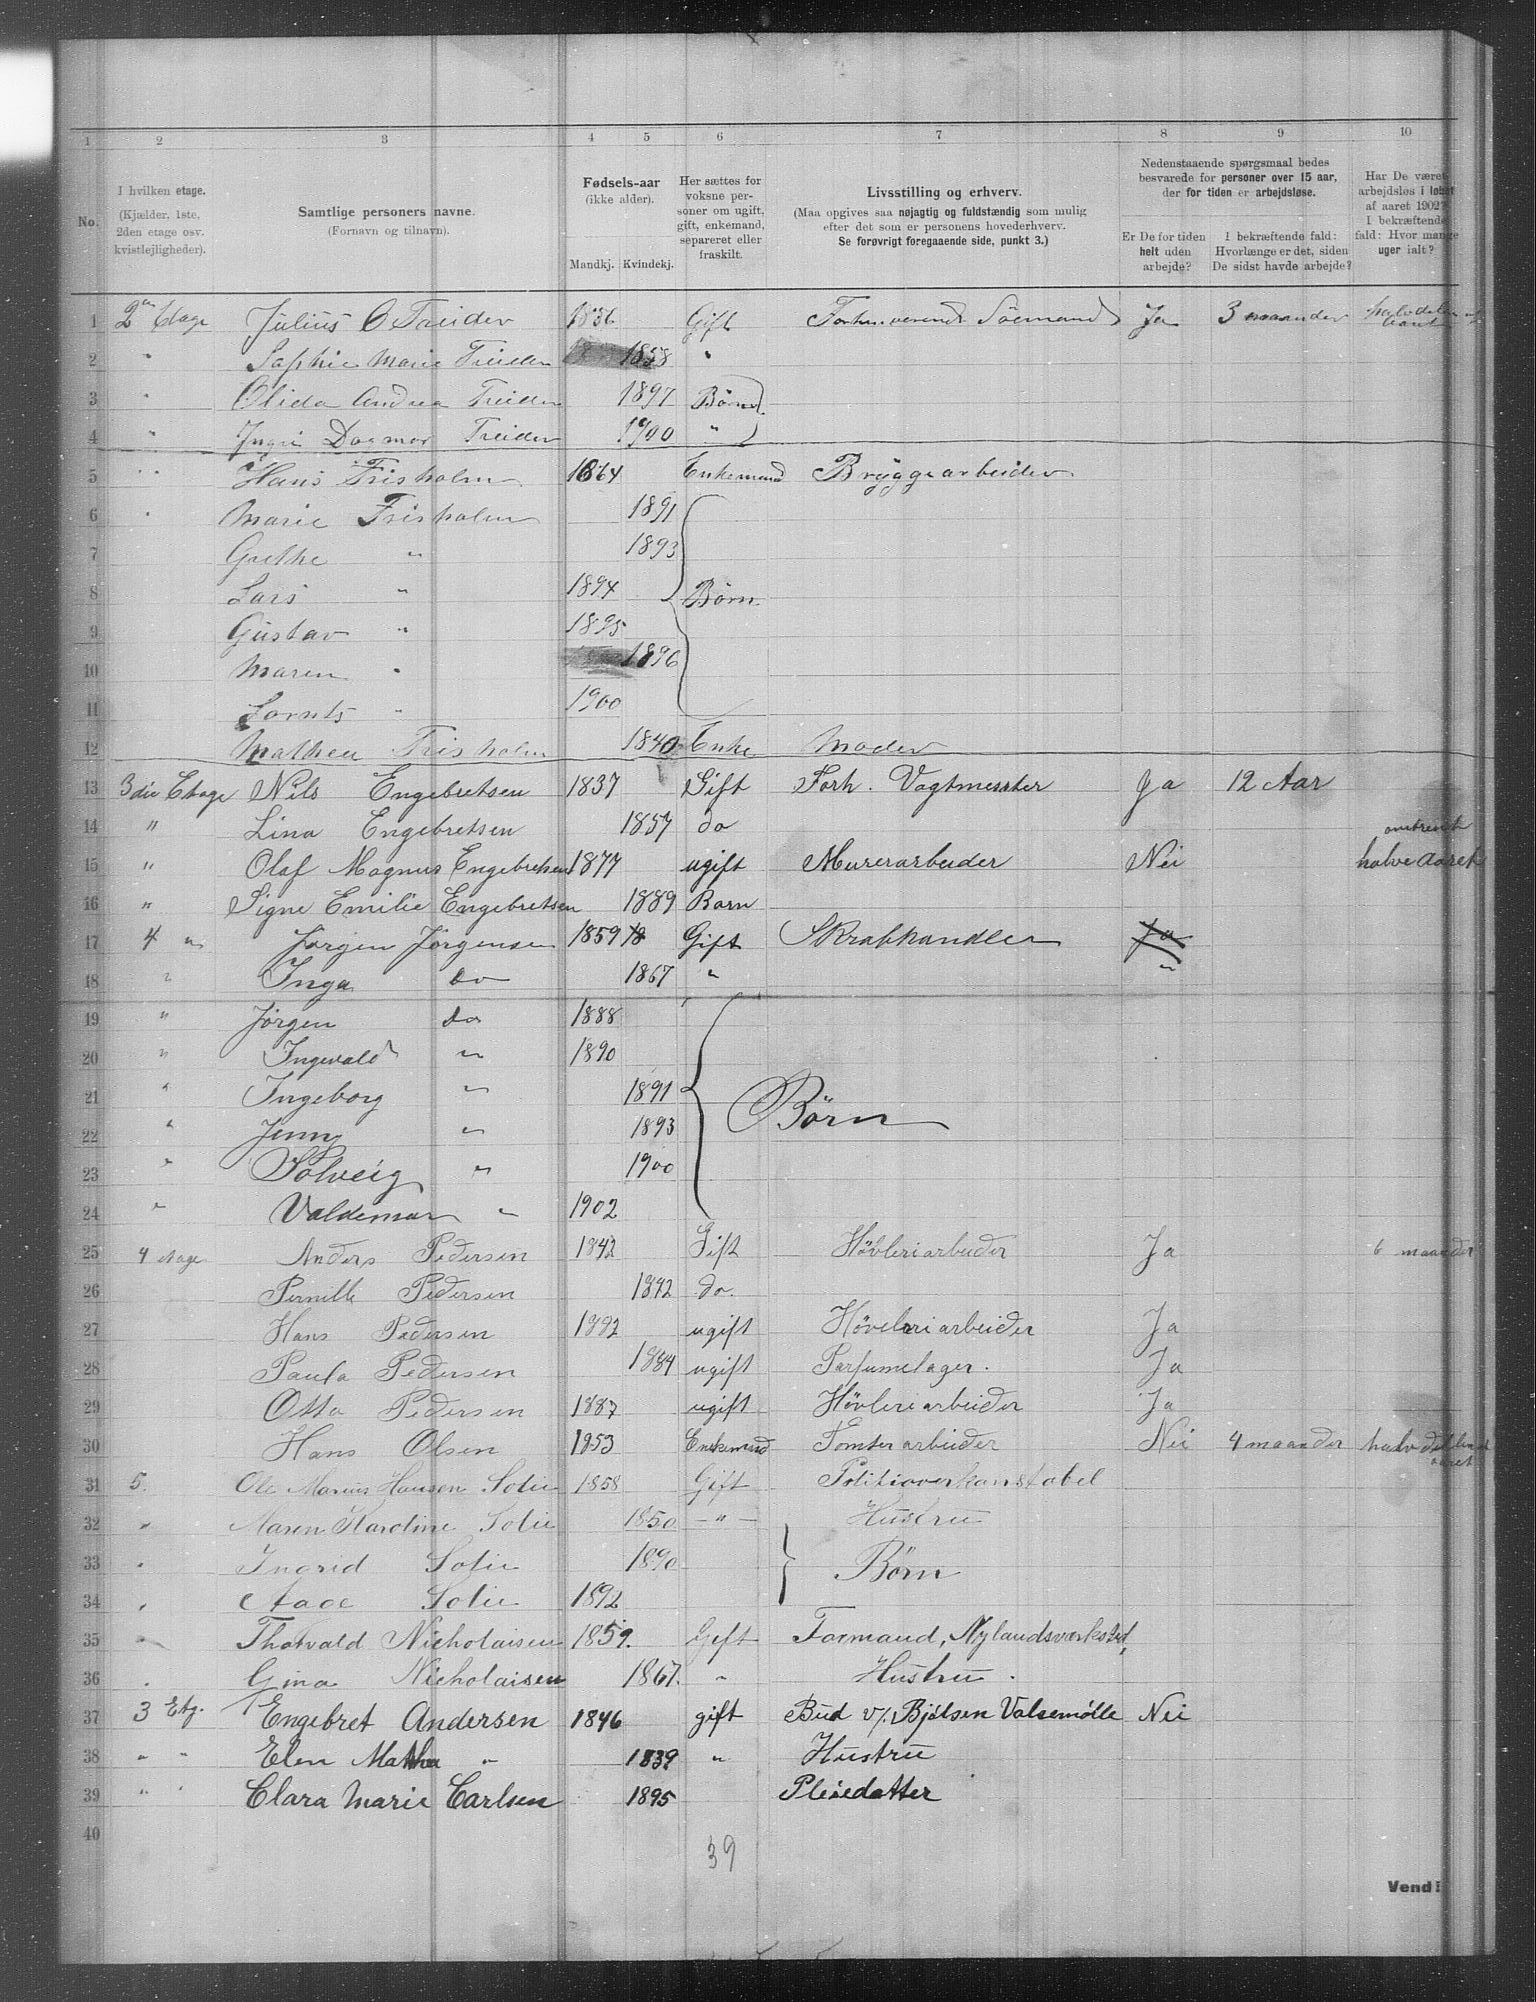 1 2 3 4 5 6 7 8 9 10
No.
I hvilken etage.
(Kjælder, 1ste,
2den etage osv.
kvistlejligheder).
Samtlige personers navne.
(Fornavn og tilnavn).
Fødsels-aar
(ikke alder).
Mandkj. Kvindekj.
Her sættes for
voksne per-
soner om ugift,
gift, enkemand,
separeret eller
fraskilt.
Livsstilling og erhverv.
(Maa opgives saa nøjagtig og fuldstændig som mulig
efter det som er personens hovederhverv.
Se forøvrigt foregaaende side, punkt 3.)
Nedenstaaende spørgsmaal bedes
besvarede for personer over 15 aar,
der for tiden er arbejdsløse.
Er De for tiden
helt uden
arbejde?
I bekræftende fald:
Hvorlænge er det, siden
De sidst havde arbejde?
Har De været
arbejdsløs i løbet
af aaret 1902?
I bekræftende
fald: Hvor mange
uger ialt?
1 2 Etage Julius O Treider 1836 Gift Forhenverende Söemand Ja 3 maander halvdelen
2 " Sophie Marie Treider 1858 "
3 " Olida Andrea Treider 1897 Börn
4 " Ingri Dagmar Treider 1900 "
5 " Hans Frisholm 1864 Enkemand Bryggearbeider
6 " Marie Frisholm 1891
7 Grethe " 1893
8 Lars " 1894 Börn
9 Gustav " 1895
10 Maren " 1896
11 Lornts " 1900
12 Mathea Frisholm 1840 Enke Moder
13 3die Etage Nils Engebretsen 1837 Gift Forh. Vagtmesster Ja 12 Aar
14 " Lina Engebretsen 1857 do
omtrent
15 " Olaf Magnus Engebretsen 1877 ugift Murerarbeider Nei halve Aaret
16 " Signe Emilie Engebretsen 1889 Barn
17 4 " Jørgen Jørgensen 1859 18 Gift Skraphandler Ja
18 " Inga do 1867 " "
19 " Jørgen do 1888
20 " Ingevald " 1890
21 " Ingeborg " 1891 Börn
22 " Jenny " 1893
23 " Solveig " 1900
24 " Valdemar " 1902
25 4 etage Anders Pedersen 1842 Gift Hövleriarbeider Ja 6 maander
26 Pernille Pedersen 1842 do.
27 Hans Pedersen 1882 ugift Höveleriarbeider Ja
28 Paula Pedersen 1884 ugift Parfumelager. Ja
29 Otto Pedersen 1887 ugift Hövleriarbeider Ja
30 Hans Olsen 1853 Enkemand Tomterarbeider Nei 4 maander
aaret
31 5. Ole Marius Hansen Solie 1858 Gift Politioverkonstabel
32 " Maren Karoline Solie 1850 - " - Hustru
33 " Ingrid Solie 1890 Börn
34 " Aage Solie 1892
35 " Thorvald Nicholaisen 1859. Gift Formand, Nylandsværksted,
36 " Gina Nicholaisen 1867. " Hustru.
37 3 Etg. Engebret Andersen 1846 gift Bud v/. Bjølsen Valsemølle Nei
38 " " Elen Mathea " 1839 " Hustru
39 " " Clara Marie Carlsen 1895 Pleiedatter
40
39
Vend!